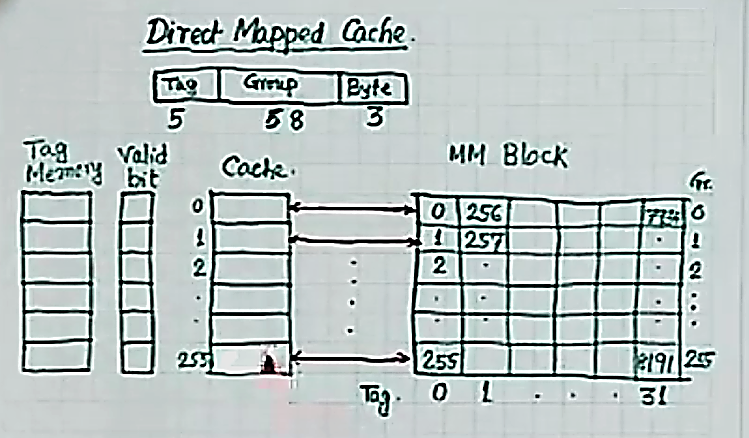 Direct Mapped Cache.
Tag Group Byte
5 8 3
Tag Memory Valid bit Cache. MM Block
Gr.
0 0 256 0
1 1 257 . 1
2 2 . 2
. . . . .
255 255 8191 255
Tag. 0 1 . . . 31